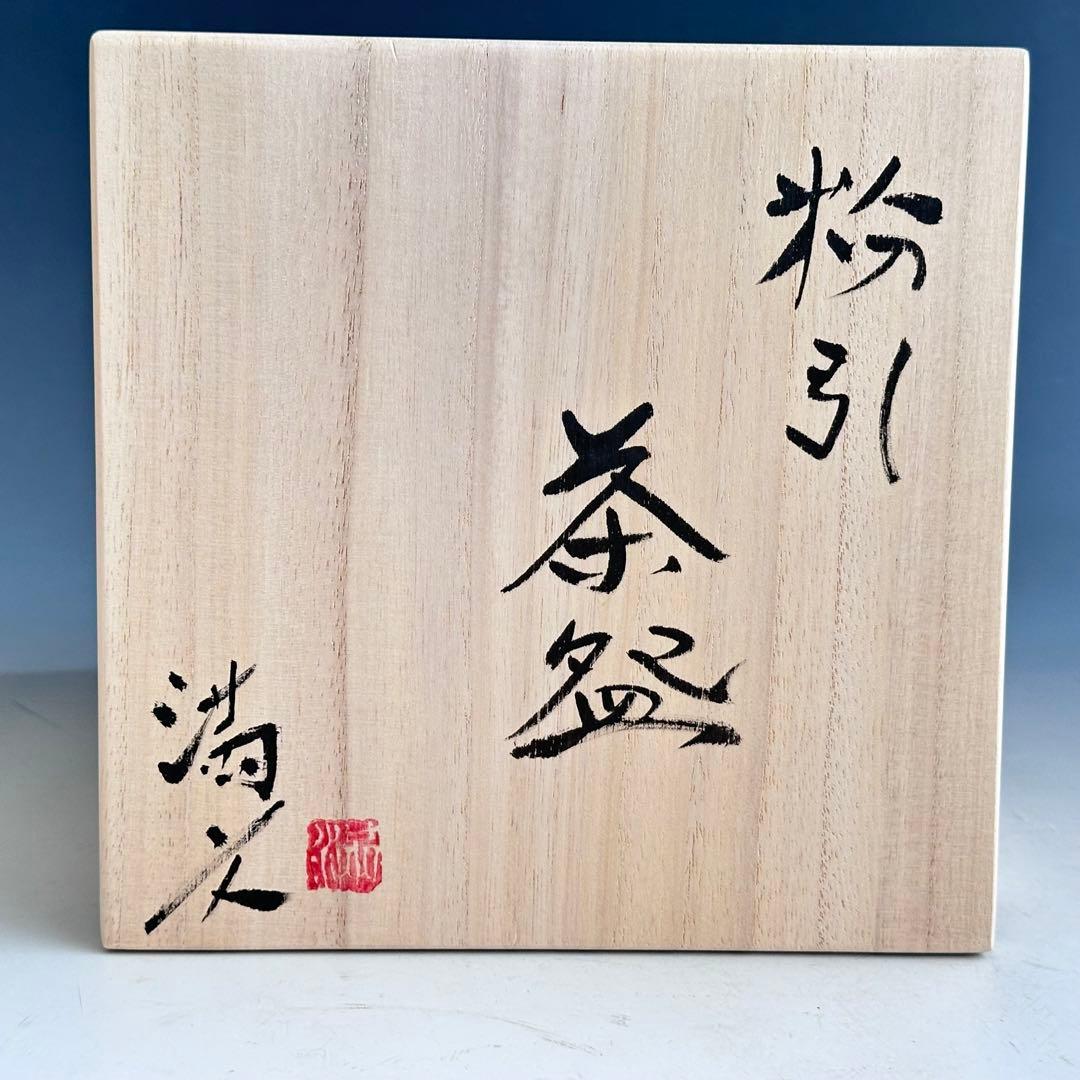 粉引
茶盌
満